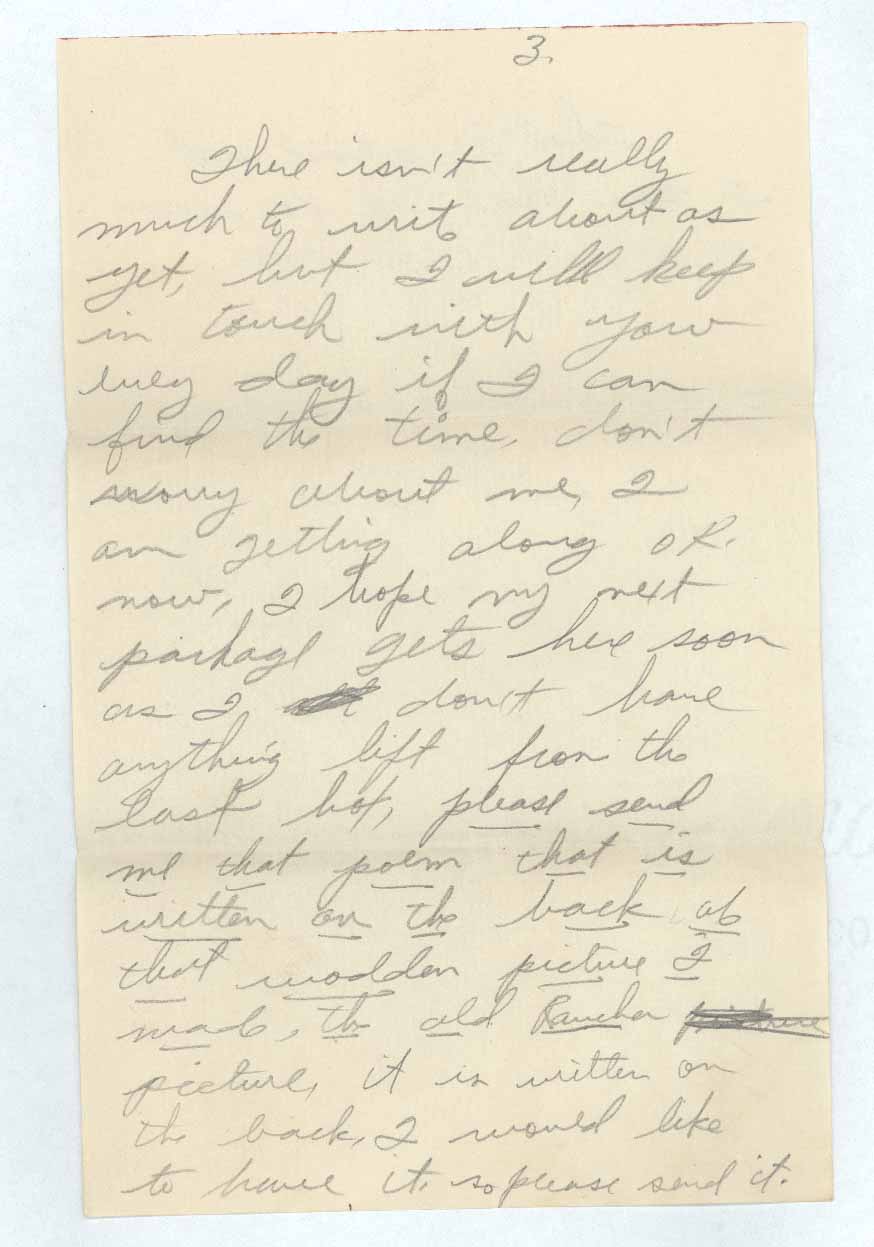 3.
There isn't really
much to write about as
yet, but I will keep
in touch with you
every day if I can
find the time, don't
worry about me, I
am getting along OK.
now, I hope my next
package gets here soon
as I don't have
anything left from the
last box, please send
me that poem that is
written on the back of
that wodden picture I
made, the old Rancher
picture, it is written on
the back, I would like
to have it. so please send it.